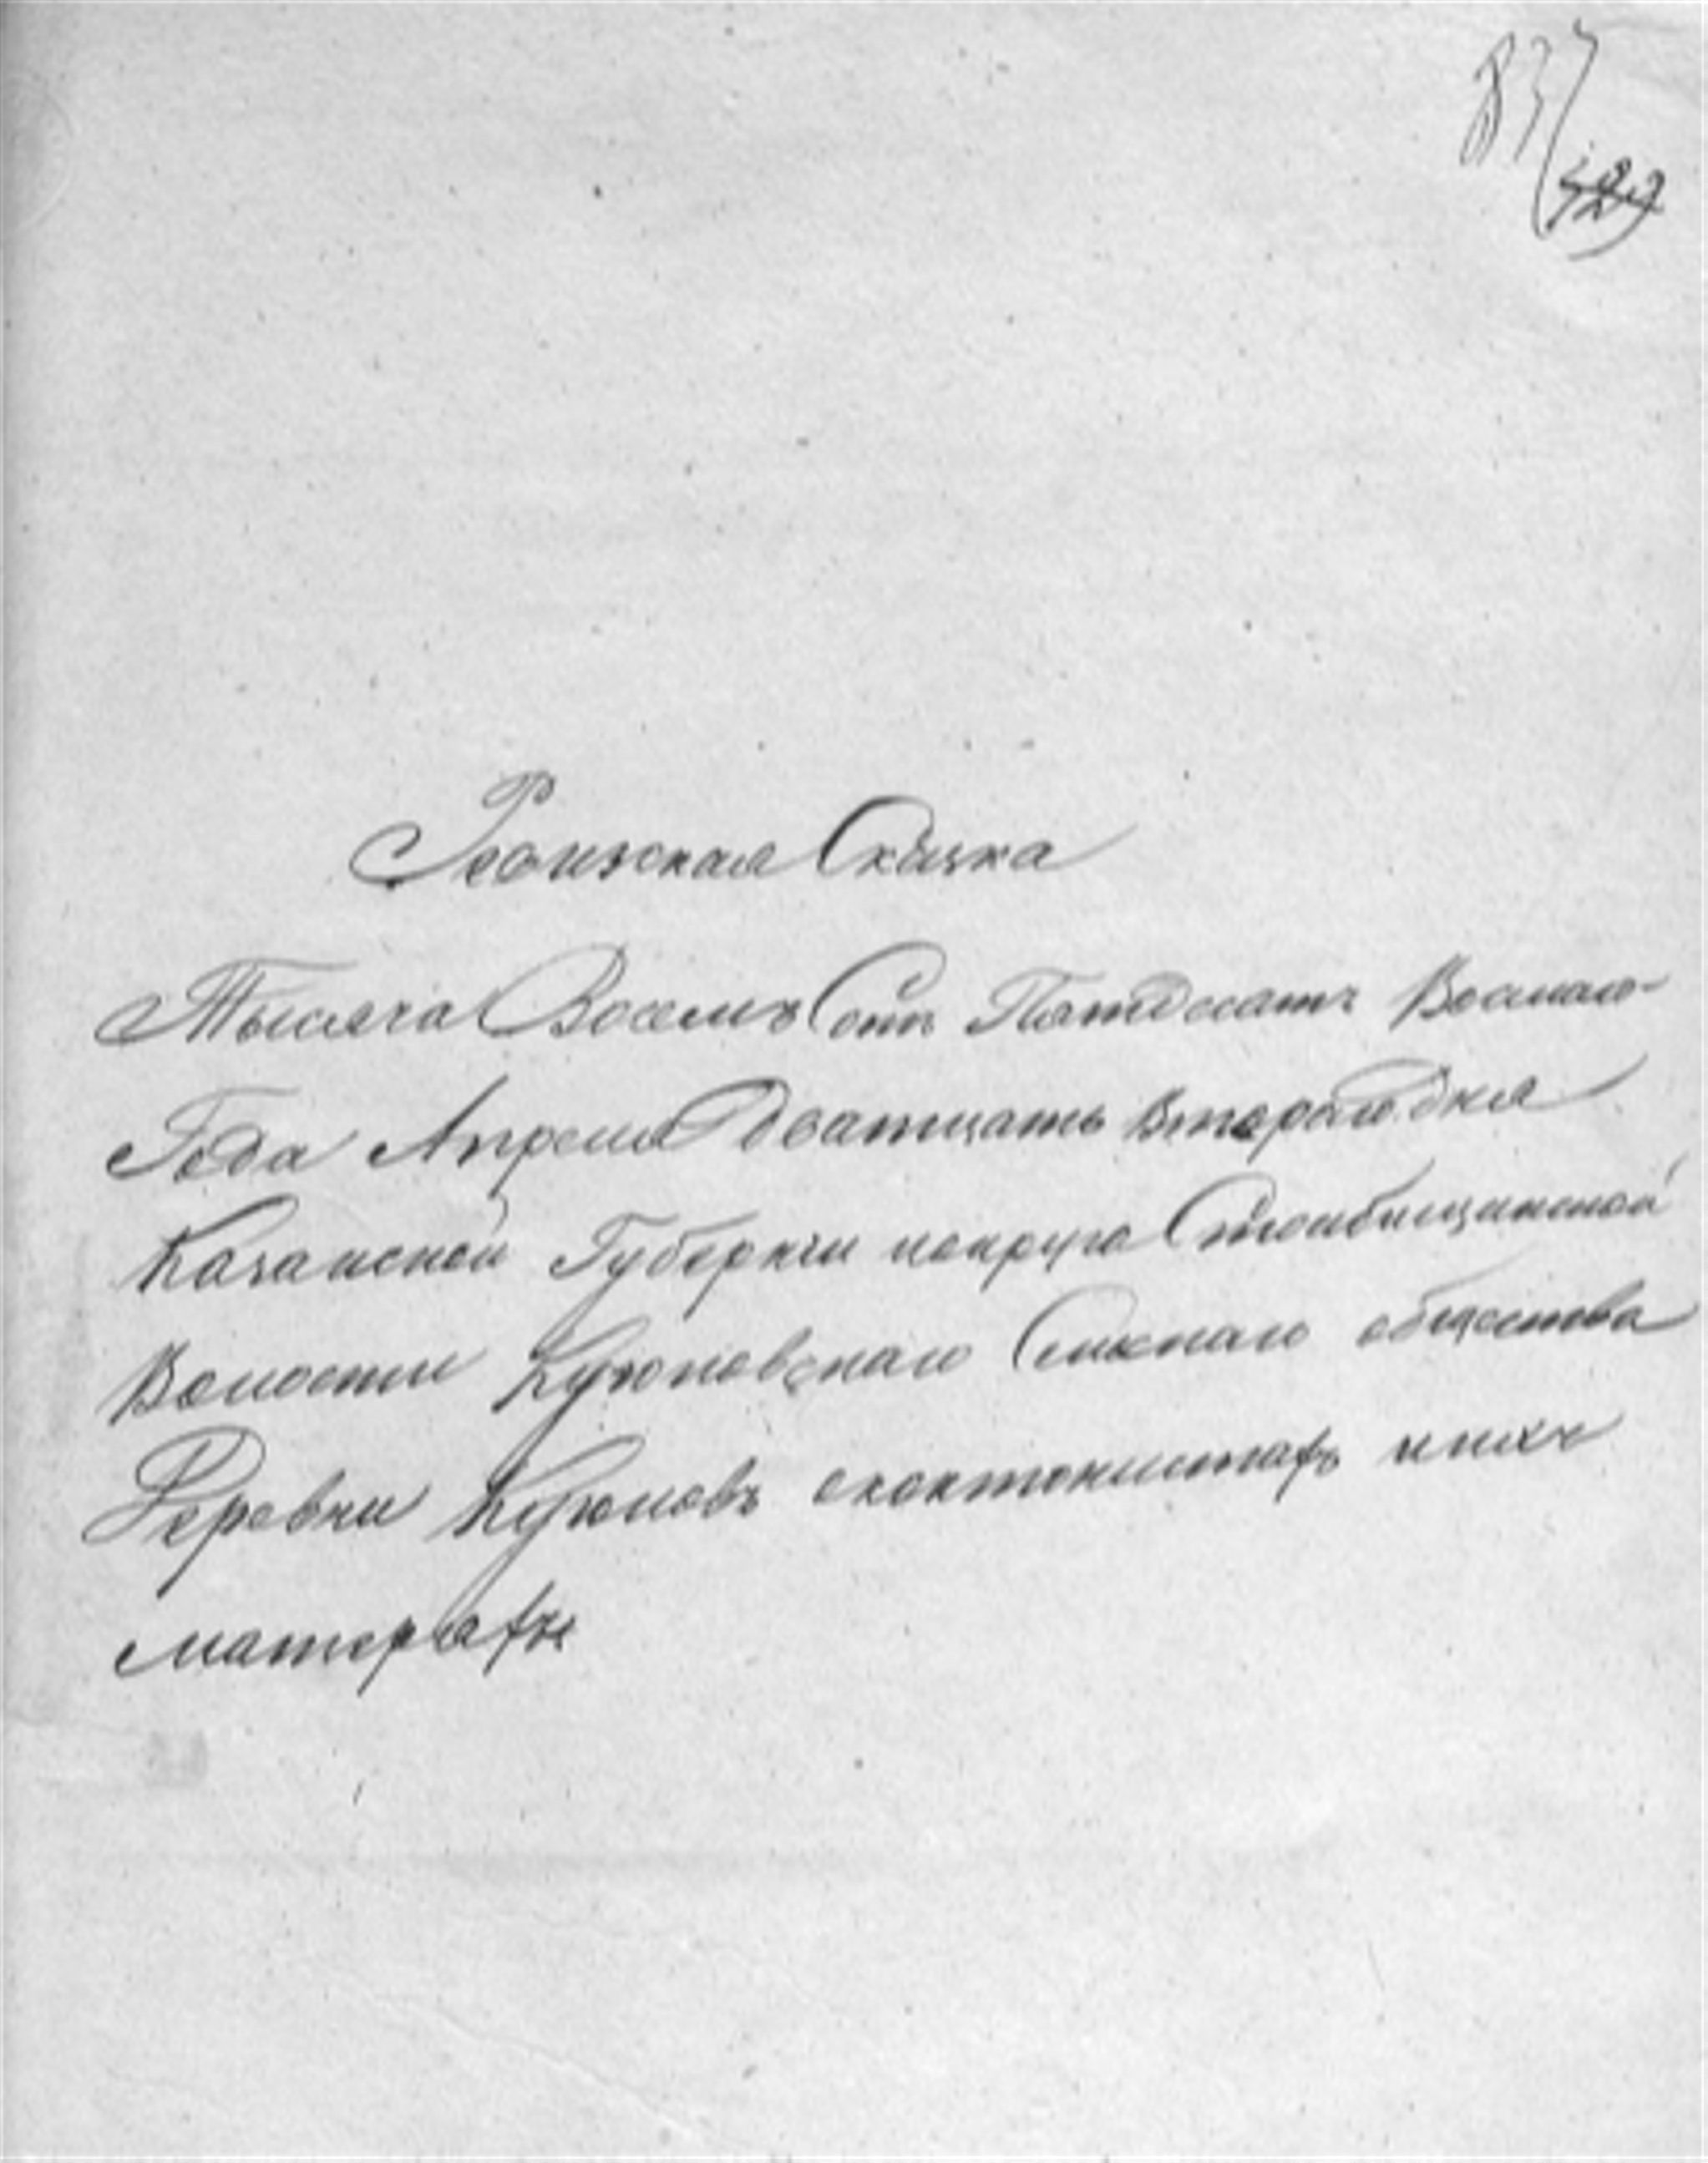 837
429
Ревижская Сказка
Тысяча Восемъ Сотъ Пятдесятъ Восмаго
Года Апреля Дватцать Втораго дня
Казанской Губернiи иокруга Столбищинской
Волости Куюковскаго Сельскаго общества
Деревни Куюковъ окантонистахъ иихъ
матеряхъ